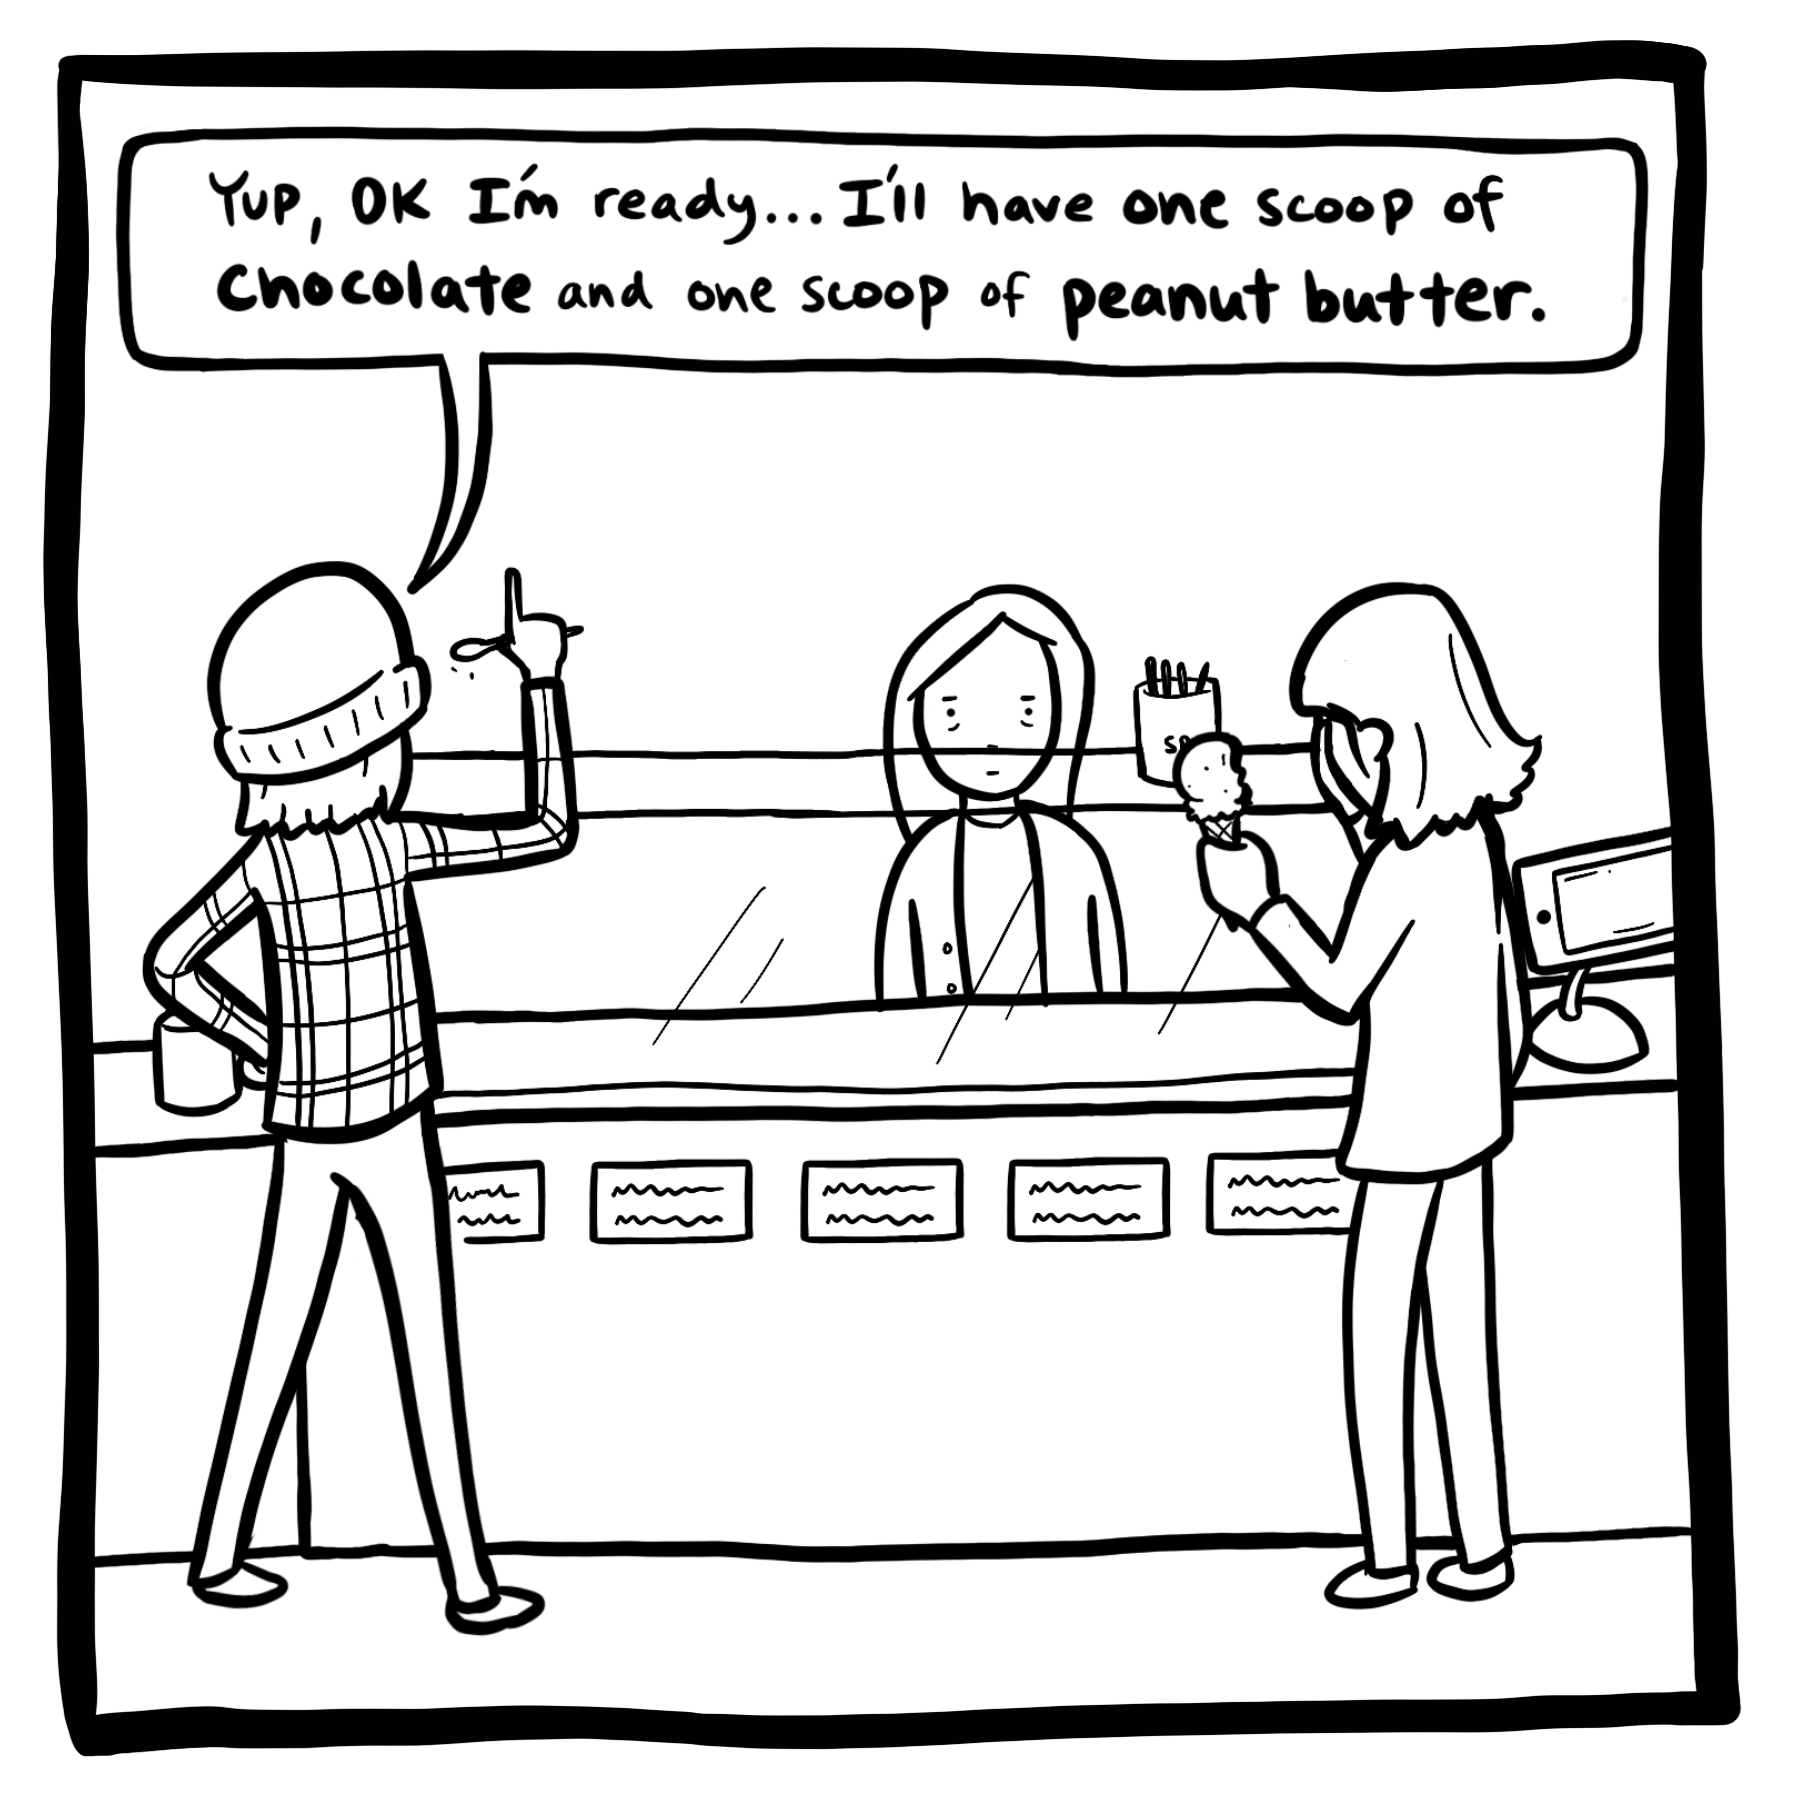 Yup, OK I'm ready... I'll have one scoop of
Chocolate and one scoop of peanut butter.